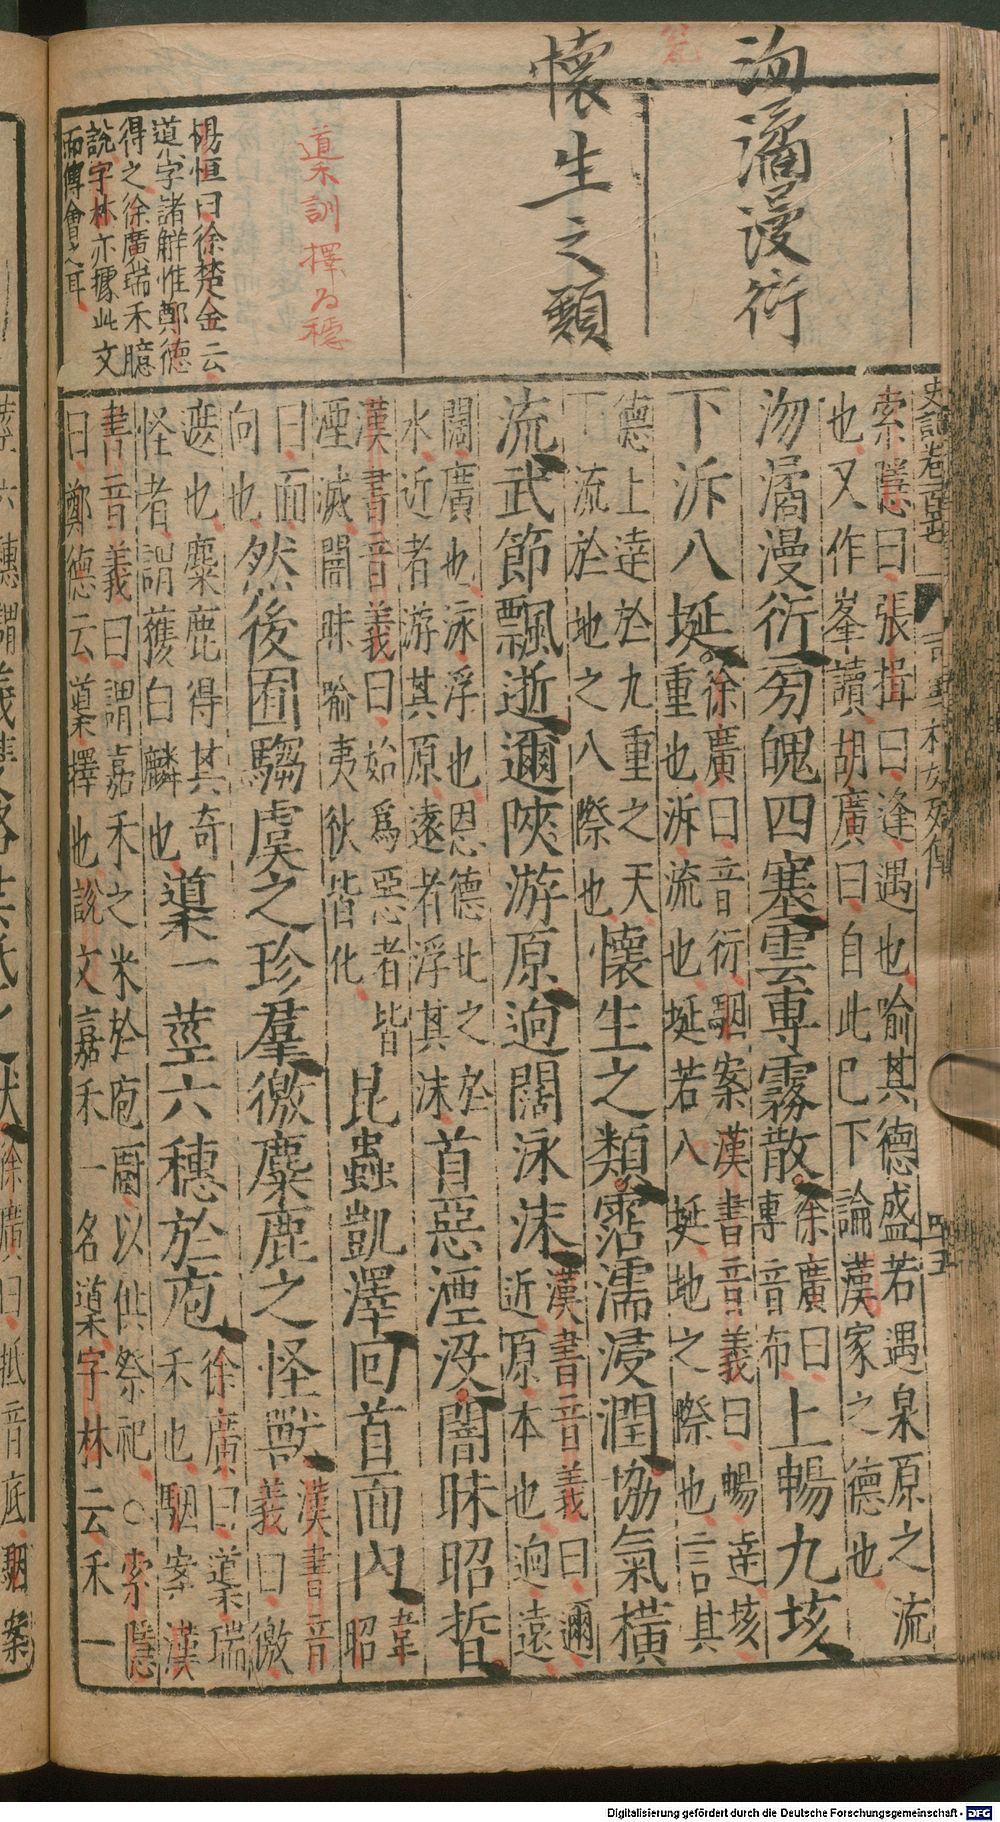 沕潏漫衍
懷生之類
導訓擇為穗
楊恒曰徐楚金云
導字諸解惟鄭德
得之徐廣瑞禾臆
說字林亦據此文
而傅會之耳
史記卷百十七
司馬相如列傳
四五
索隱曰張揖曰逢遇也喻其德盛若遇泉原之流
也又作峯讀胡廣曰自此已下論漢家之德也
沕潏漫衍旁魄四塞雲尃霧散徐廣曰尃音布上暢九垓
下泝八埏徐廣曰音衍駰案漢書音義曰暢達垓重也泝流也埏若八埏地之際也言其
德上達於九重之天下流於地之八際也懷生之類霑濡浸潤協氣橫
流武節飄逝邇陜游原迥闊泳沫漢書音義曰邇近原本也迥遠
闊廣也泳浮也恩德比之於水近者游其原遠者浮其沫首惡湮沒闇昧昭晢
漢書音義曰始為惡者皆湮滅闇昧喻夷狄皆化昆蟲凱澤回首面內韋昭
曰面向也然後囿騶虞之珍羣徼麋鹿之怪獸漢書音義曰徼
遮也麋鹿得其奇怪者謂獲白麟也導一莖六穗於庖徐廣曰導瑞禾也駰案漢
書音義曰謂嘉禾之米於庖廚以供祭祀○索隱
曰鄭德云導擇也說文嘉禾一名導字林云禾一
莖六穗謂
徐廣曰柢音底駰案
Digitalisierung gefördert durch die Deutsche Forschungsgemeinschaft - DFG